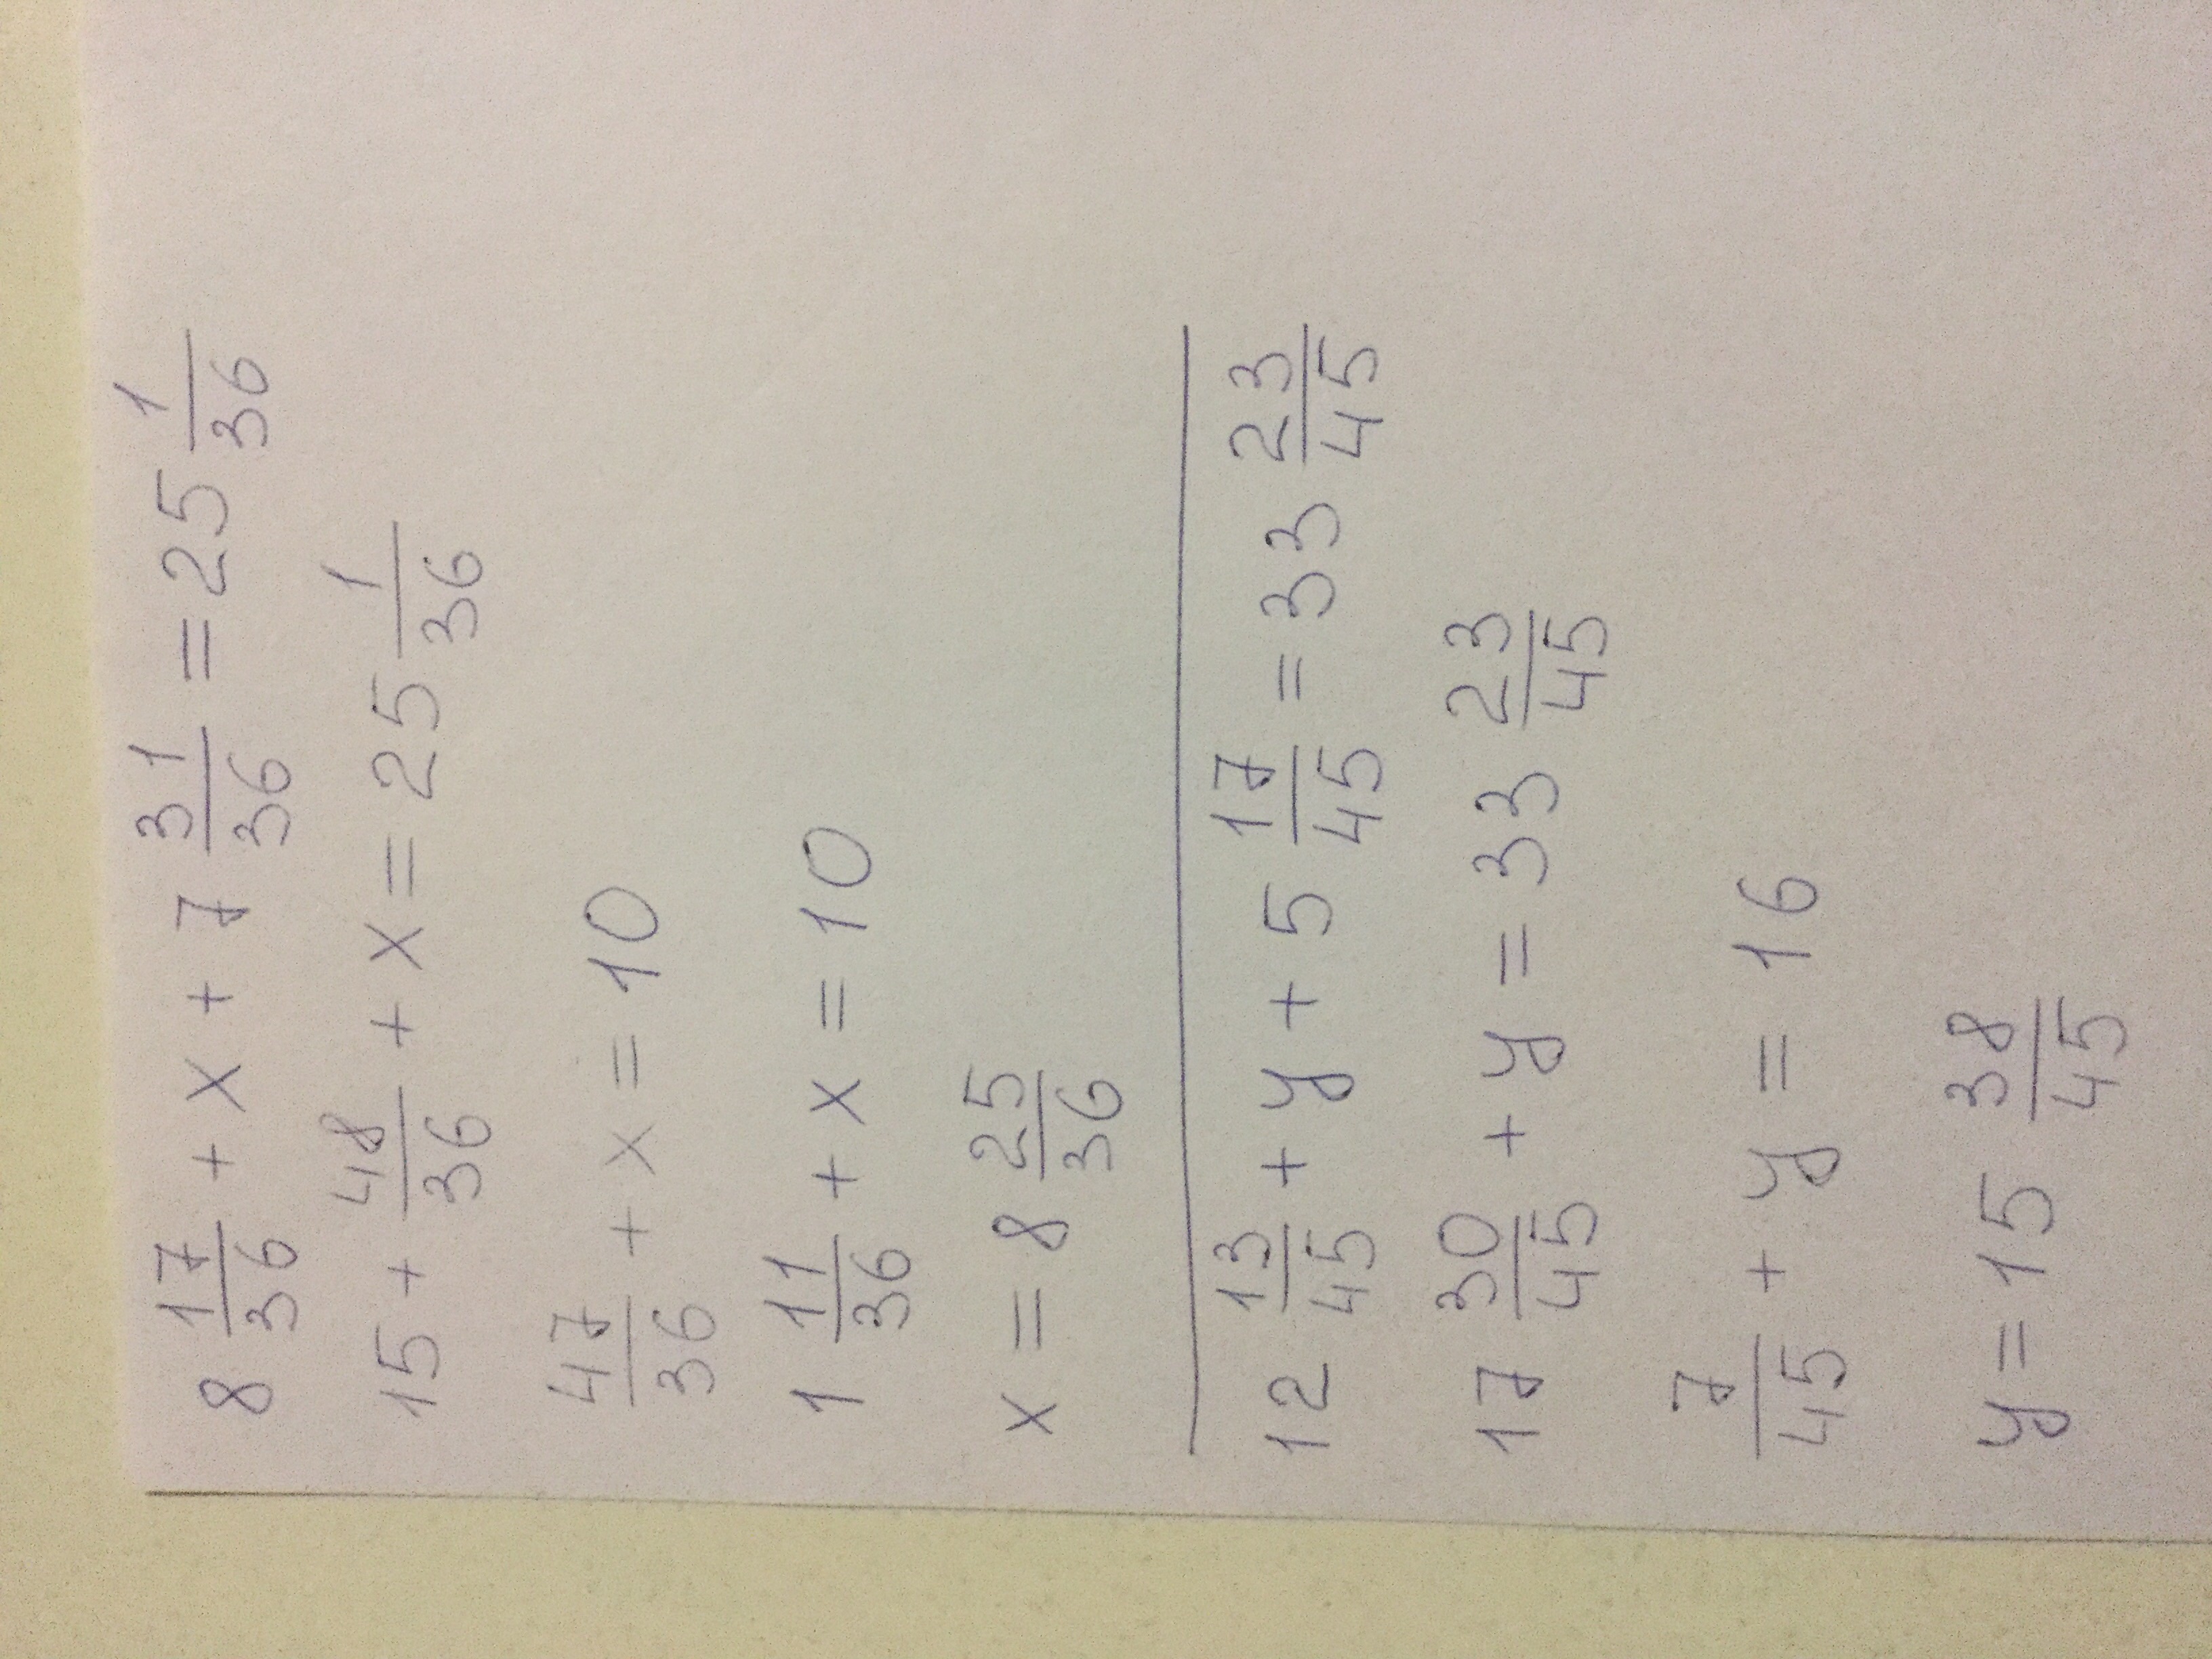 8 17/36 + x + 7 31/36 = 25 1/36
15 + 48/36 + x = 25 1/36
47/36 + x = 10
1 11/36 + x = 10
x = 8 25/36
12 13/45 + y + 5 17/45 = 33 23/45
17 30/45 + y = 33 23/45
7/45 + y = 16
y = 15 38/45